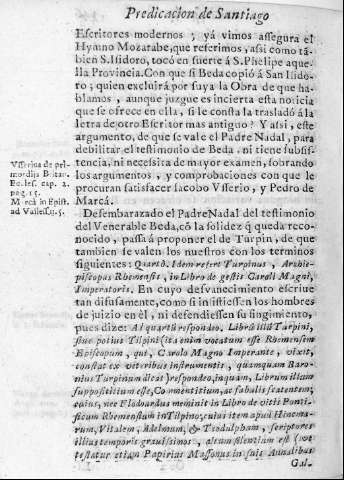 Predicacion de Santiago
Escritores modernos; yà vimos assegura el
Hymno Mozarabe, que referimos, assi como tā-
bien S. Isidoro, tocò en suerte à S. Phelipe aque-
lla Provincia. Con que si Beda copiò à San Isido-
ro; quien excluirà por suya la Obra de que ha-
blamos, aunque juzgue es incierta esta noticia
que se ofrece en ella, si le consta la trasladò à la
letra de otro Escritor mas antiguo? Y assi, este
argumento, de que se vale el Padre Nadal, para
debilitar el testimonio de Beda, ni tiene subsis-
tencia, ni necesita de mayor examen, sobrando
los argumentos, y comprobaciones con que le
procuran satisfacer Iacobo Usserio, y Pedro de
Marcà.
Usserius de pri-
mordijs Britan.
Eccles. cap. 2.
pag. 15.
Marcà in Epist.
ad Valles. §. 5.
Desembarazado el Padre Nadal del testimonio
del Venerable Beda, cō la solidez q̄ queda reco-
nocido, passa à proponer el de Turpin, de que
tambien se valen los nuestros con los terminos
siguientes: Quartò. Idem refert Turpinus, Archie-
piscopus Rhemensis, in Libro de gestis Caroli Magni,
Imperatoris. En cuyo desvanecimiento escrive
tan difusamente, como si insistiessen los hombres
de juizio en èl, ni defendiessen su fingimiento,
pues dize: Ad quartù respondeo, Librù illù Turpini,
sive potius Tilpini (ita enim vocatum esse Rhemensem
Episcopum, qui, Carolo Magno Imperante, vixit,
constat ex veteribus instrumentis, quamquam Baro-
nius Turpinum dicat) respondeo, inquam, Librum illum
supposititium esse, Commentitium, ac fabulis scatentem;
quius, nec Flodoardus meminit in Libro de vitis Ponti-
ficum Rhemensium in Tilpino; cuius item apud Hincma-
rum, Vitalem, Adelmum, & Theodulpham, scriptores
illius temporis gravissimos, altum silentium est (ut
testatur etiam Papirius Massonus in suis Annalibus
Gal-